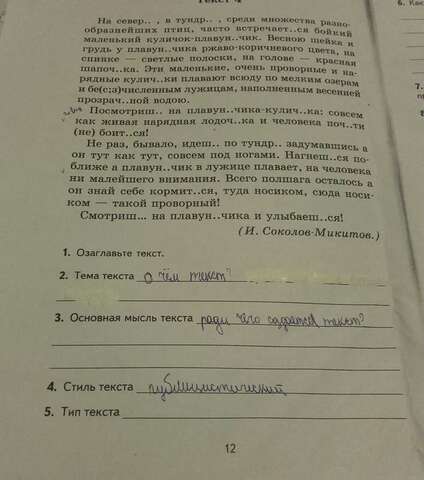 Текст 4
На север.. , в тундр.. , среди множества разно-
образнейших птиц, часто встречает..ся бойкий
маленький куличок-плавун..чик. Весною шейка и
грудь у плавун..чика ржаво-коричневого цвета, на
спинке — светлые полоски, на голове — красная
шапоч..ка. Эти маленькие, очень проворные и на-
рядные кулич..ки плавают всюду по мелким озерам
и бе(с;з)численным лужицам, наполненным весенней
прозрач..ной водою.
Посмотриш.. на плавун..чика-кулич..ка: совсем
как живая нарядная лодоч..ка и человека поч..ти
(не) боит..ся!
Не раз, бывало, идеш.. по тундр.. задумавшись а
он тут как тут, совсем под ногами. Нагнеш..ся по-
ближе а плавун..чик в лужице плавает, на человека
ни малейшего внимания. Всего полшага осталось а
он знай себе кормит..ся, туда носиком, сюда носи-
ком — такой проворный!
Смотриш... на плавун..чика и улыбаеш..ся!
(И. Соколов-Микитов.)
1. Озаглавьте текст.
2. Тема текста о чём текст?
3. Основная мысль текста ради чего создаётся текст?
4. Стиль текста публицистический
5. Тип текста
12
6. Как
7.